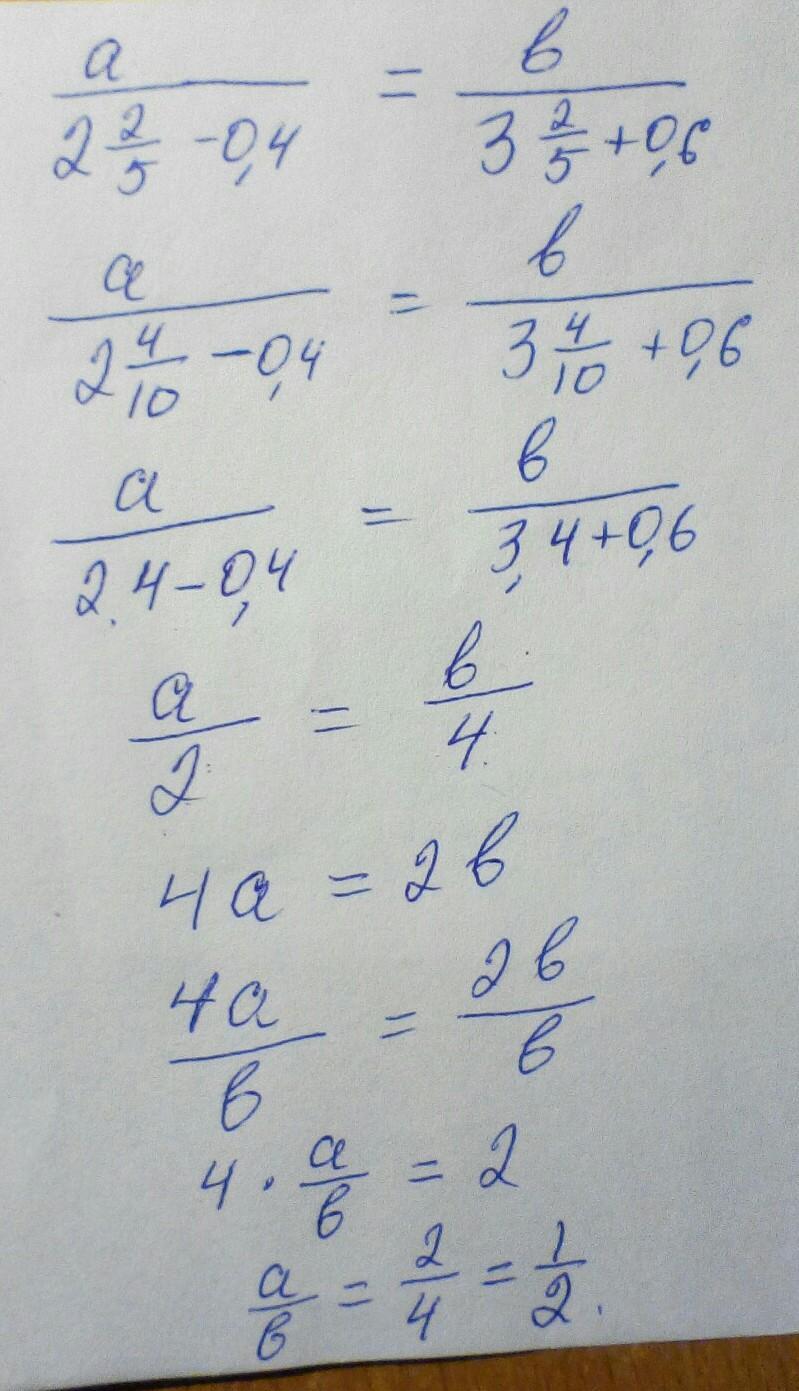 a/(2 2/5 - 0,4) = в/(3 2/5 + 0,6)
a/(2 4/10 - 0,4) = в/(3 4/10 + 0,6)
a/(2.4 - 0,4) = в/(3,4 + 0,6)
a/2 = в/4
4a = 2в
4a/в = 2в/в
4 · a/в = 2
a/в = 2/4 = 1/2.